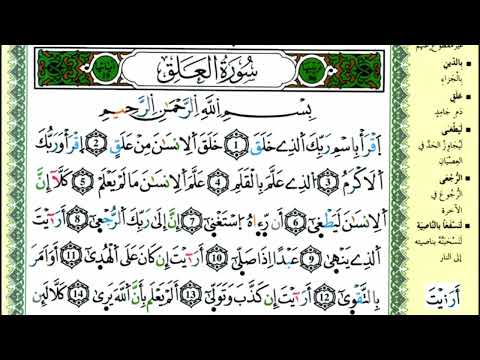 سُورَةُ الْعَلَقِ
بِسْمِ اللَّهِ الرَّحْمَٰنِ الرَّحِيمِ
اَ۪قْرَأْ بِاسْمِ رَبِّكَ اَ۬لذِے خَلَقَ 1 خَلَقَ اَ۬لِانسَٰنَ مِنْ عَلَقٍ 2 اِ۪قْرَأْ وَرَبُّكَ
اَ۬لَاكْرَمُ 3 اَ۬لذِے عَلَّمَ بِالْقَلَمِ 4 عَلَّمَ اَ۬لِانسَٰنَ مَا لَمْ يَعْلَمْ 5 كَلَّآ إِنَّ
اَ۬لِانسَٰنَ لَيَطْغ۪يٰٓ 6 أَن رَّء۪اهُ اُ۪سْتَغْن۪يٰٓ 7 إِنَّ إِلَيٰ رَبِّكَ اَ۬لرُّجْع۪يٰٓ 8 أَرَٰٓيْتَ
اَ۬لذِے يَنْه۪يٰ 9 عَبْداً اِذَا صَلّ۪يٰٓ 10 أَرَٰٓيْتَ إِن كَانَ عَلَي اَ۬لْهُد۪يٰٓ 11 أَوَ اَمَرَ
بِالتَّقْو۪يٰٓ 12 أَرَٰٓيْتَ إِن كَذَّبَ وَتَوَلّ۪يٰٓ 13 أَلَمْ يَعْلَم بِأَنَّ اَ۬للَّهَ يَر۪يٰ 14 كَلَّا لَئِن
غير مقطوع عنهم
بِالدِّينِ
بِالْجَزَاءِ
عَلَقٍ
دَمٍ جَامِدٍ
لَيَطْغَى
لَيُجَاوِزُ الْحَدَّ فِي
الْعِصْيَانِ
الرُّجْعَى
الرُّجُوعَ فِي
الآخِرَةِ
لَنَسْفَعاً بِالنَّاصِيَةِ
لَنَسْحَبَنَّهُ بِنَاصِيَتِهِ
إِلَى النَّارِ
أَرَٰٓيْتَ